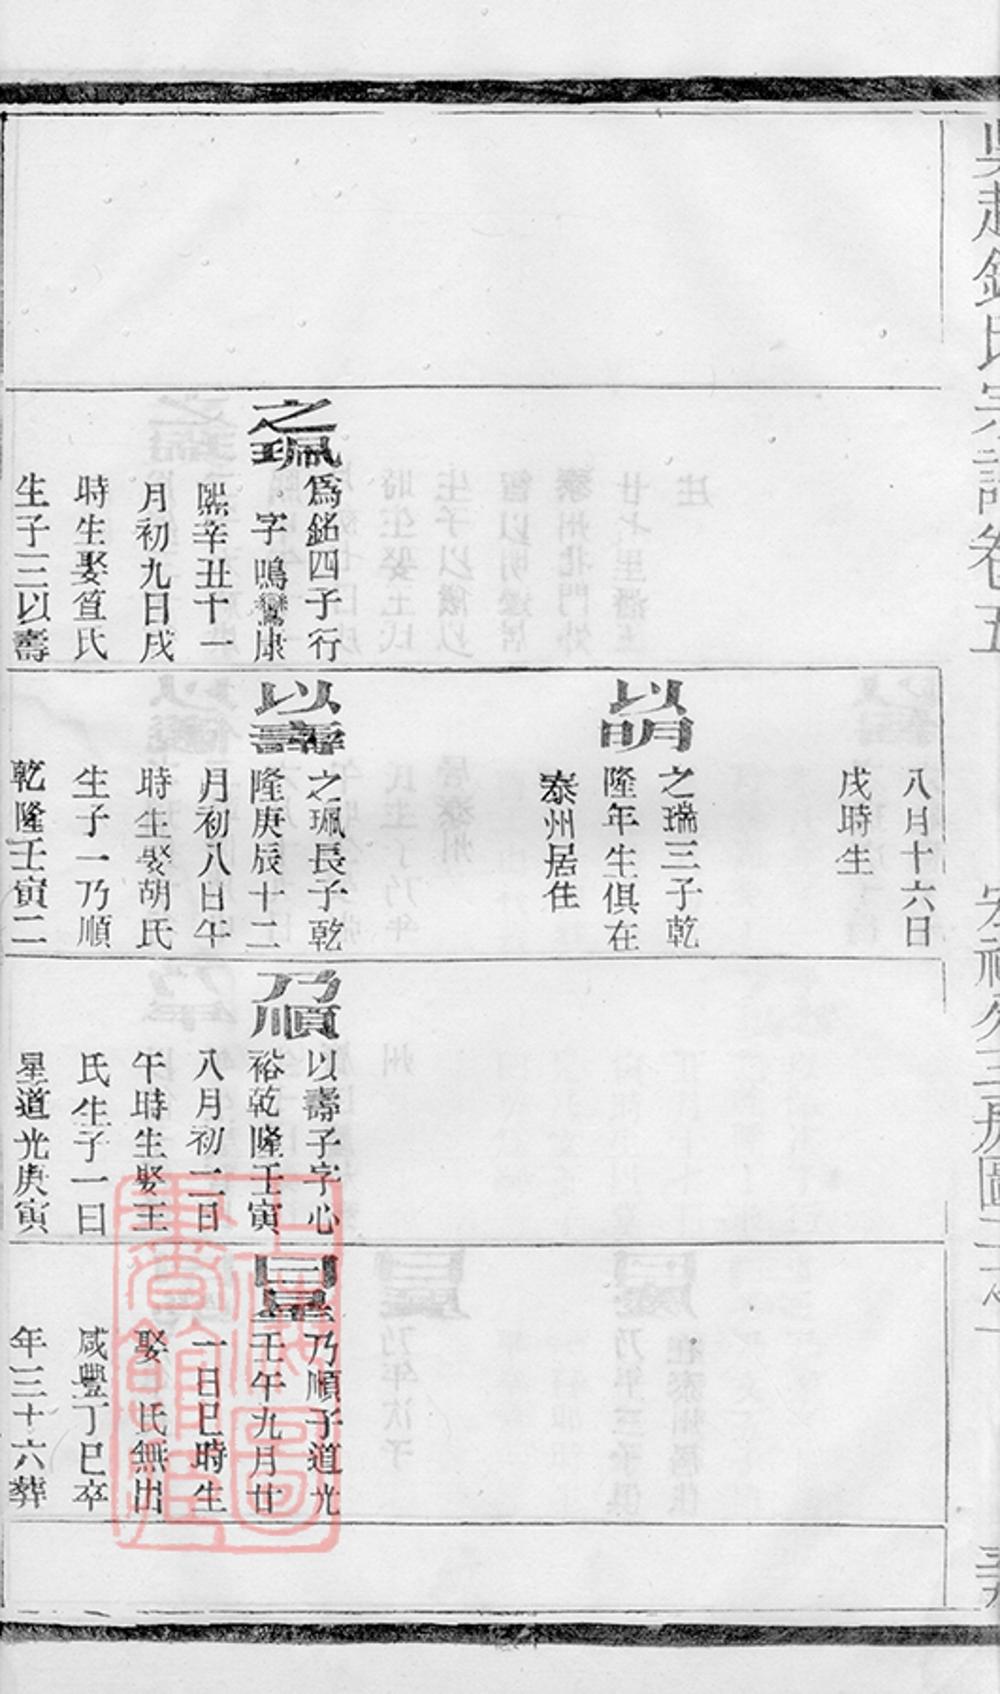 吳越錢氏宗譜卷五
宗禮公三房圖
之珮
爲銘四子行
字鳴鸞康
熙辛丑十一
月初九日戌
時生娶笪氏
生子三以壽
八月十六日
戌時生
以明
之瑞三子乾
隆年生俱在
泰州居住
以壽
之珮長子乾
隆庚辰十二
月初八日午
時生娶胡氏
生子一乃順
乾隆壬寅二
乃順
以壽子字心
裕乾隆壬寅
八月初二日
午時生娶王
氏生子一曰
星道光庚寅
曰星
乃順子道光
壬午九月廿
一日巳時生
娶 氏無出
咸豐丁巳卒
年三十六葬
上海圖
書館藏